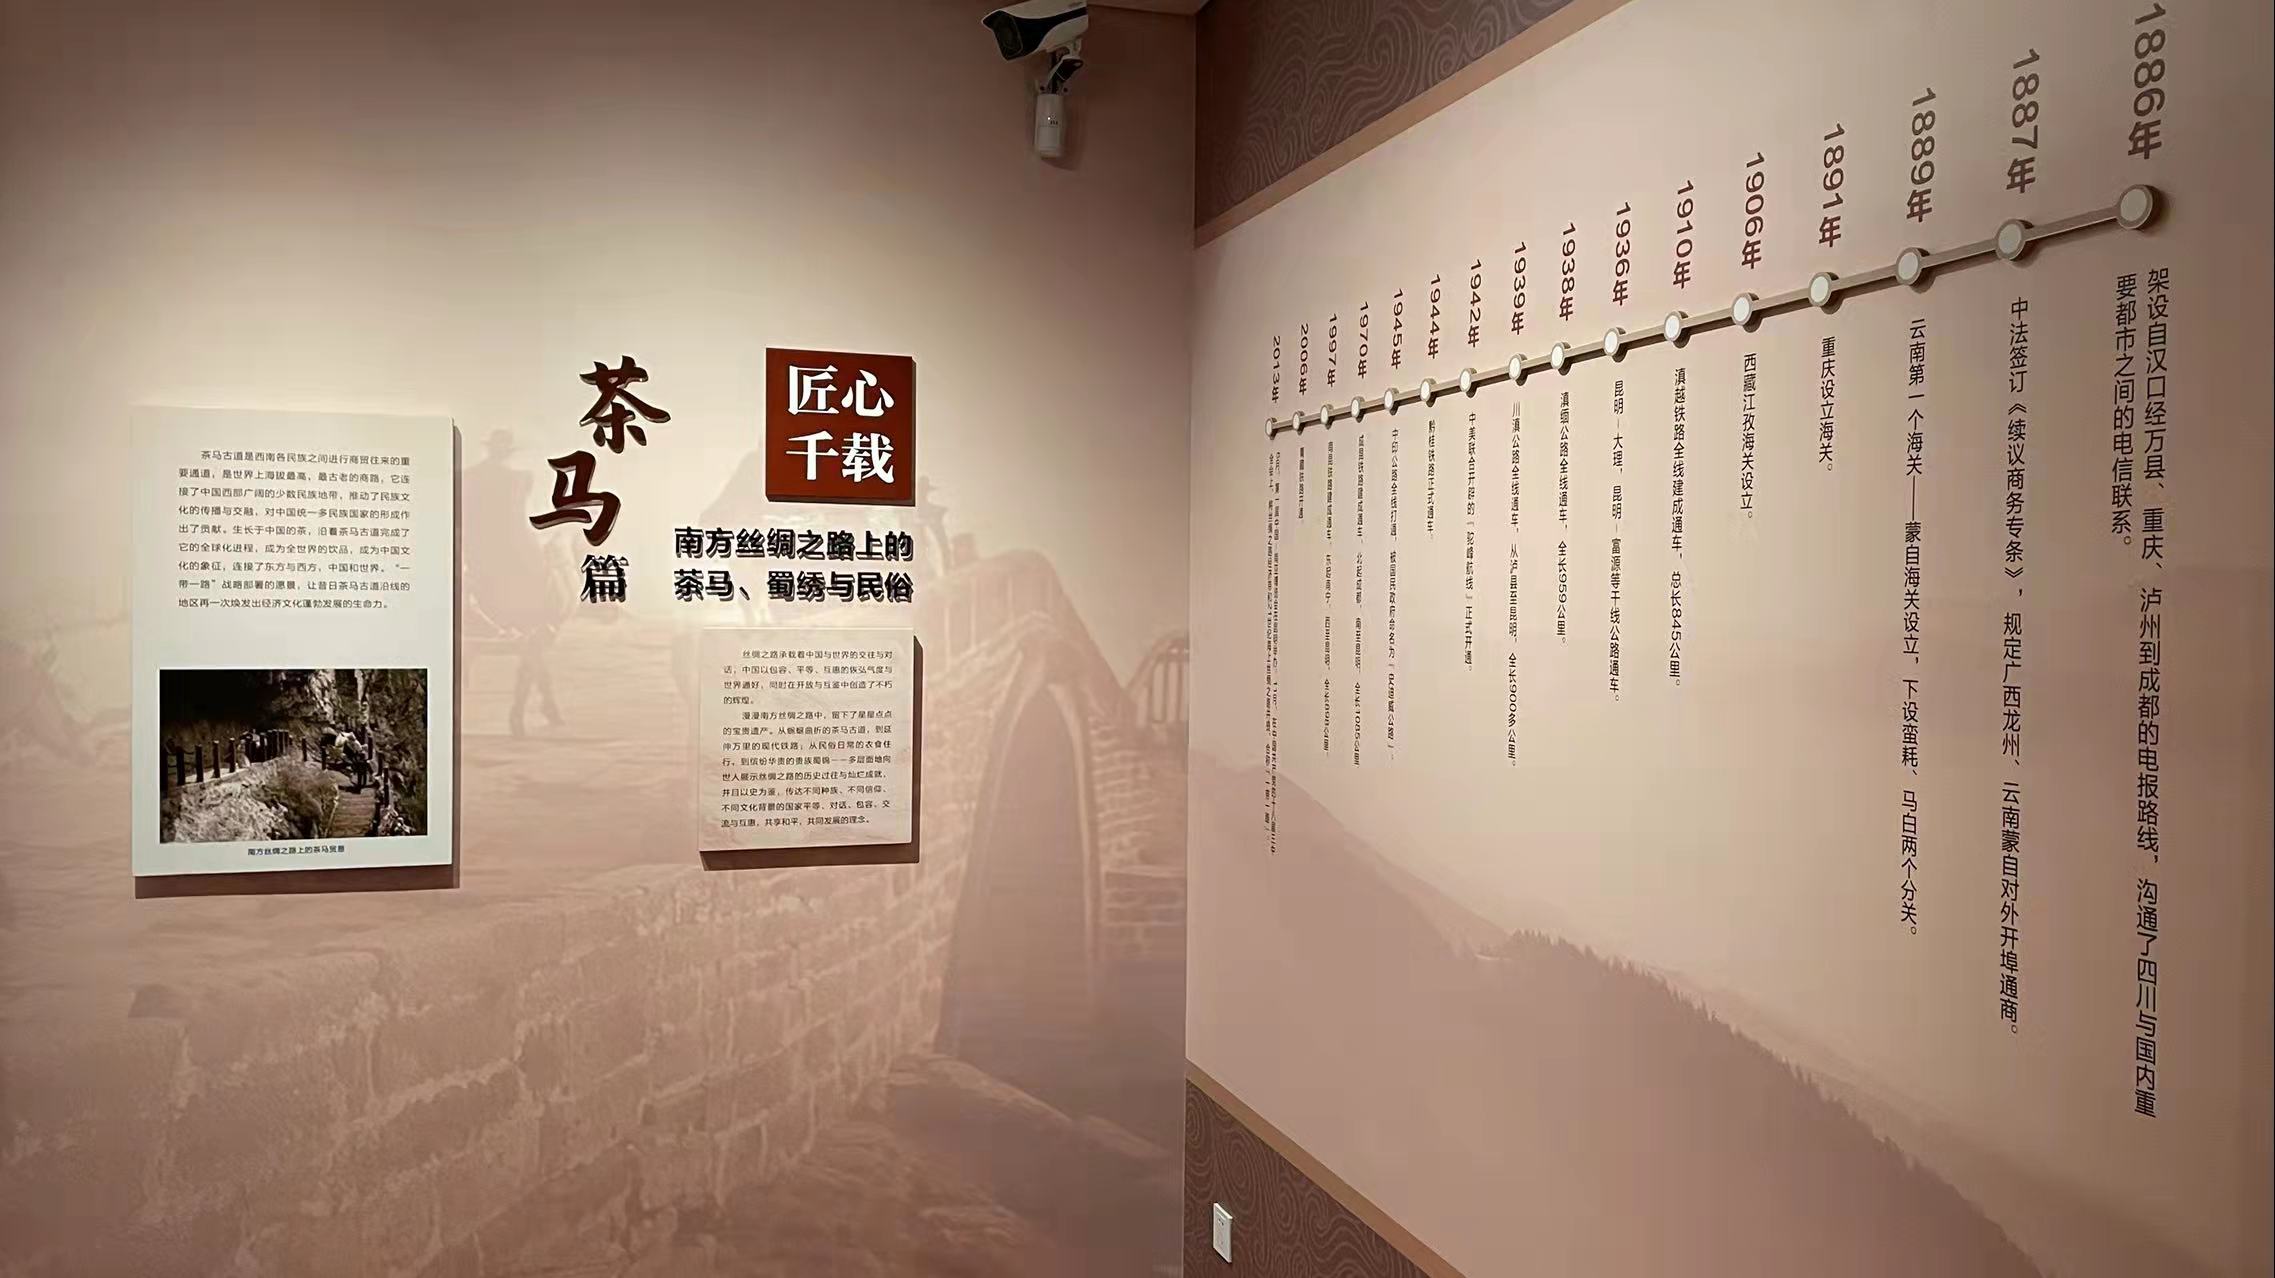 茶马篇
匠心
千载
南方丝绸之路上的
茶马、蜀绣与民俗
茶马古道是西南各民族之间进行商贸往来的重
要通道，是世界上海拔最高、最古老的商路，它连
接了中国西部广阔的少数民族地带，推动了民族文
化的传播与交融，对中国统一多民族国家的形成作
出了贡献。生长于中国的茶，沿着茶马古道完成了
它的全球化进程，成为全世界的饮品，成为中国文
化的象征，连接了东方与西方，中国和世界。“一
带一路”战略部署的愿景，让昔日茶马古道沿线的
地区再一次焕发出经济文化蓬勃发展的生命力。
南方丝绸之路上的茶马贸易
丝绸之路承载着中国与世界的交往与对
话，中国以包容、平等、互惠的恢弘气度与
世界通好，同时在开放与互鉴中创造了不朽
的辉煌。
漫漫南方丝绸之路中，留下了星星点点
的宝贵遗产。从蜿蜒曲折的茶马古道，到延
伸万里的现代铁路；从民俗日常的衣食住
行，到缤纷华贵的贵族蜀锦——多层面地向
世人展示丝绸之路的历史过往与灿烂成就，
并且以史为鉴，传达不同种族、不同信仰、
不同文化背景的国家平等、对话、包容、交
流与互惠，共享和平，共同发展的理念。
1886年
架设自汉口经万县、重庆、泸州到成都的电报路线，沟通了四川与国内重
要都市之间的电信联系。
1887年
中法签订《续议商务专条》，规定广西龙州、云南蒙自对外开埠通商。
1889年
云南第一个海关——蒙自海关设立，下设蛮耗、马白两个分关。
1891年
重庆设立海关。
1906年
西藏江孜海关设立。
1910年
滇越铁路全线建成通车，总长845公里。
1936年
昆明－大理，昆明－富源等干线公路通车。
1938年
滇缅公路全线通车，全长959公里。
1939年
川滇公路全线通车，从泸县至昆明，全长900多公里。
1942年
中美联合开辟的“驼峰航线”正式开通。
1944年
黔桂铁路正式通车。
1945年
中印公路全线打通，被国民政府命名为“史迪威公路”。
1970年
成昆铁路建成通车，北起成都，南至昆明，全长1085公里。
1997年
南昆铁路建成通车，东起南宁，西至昆明，全长898公里。
2006年
青藏铁路开通。
2013年